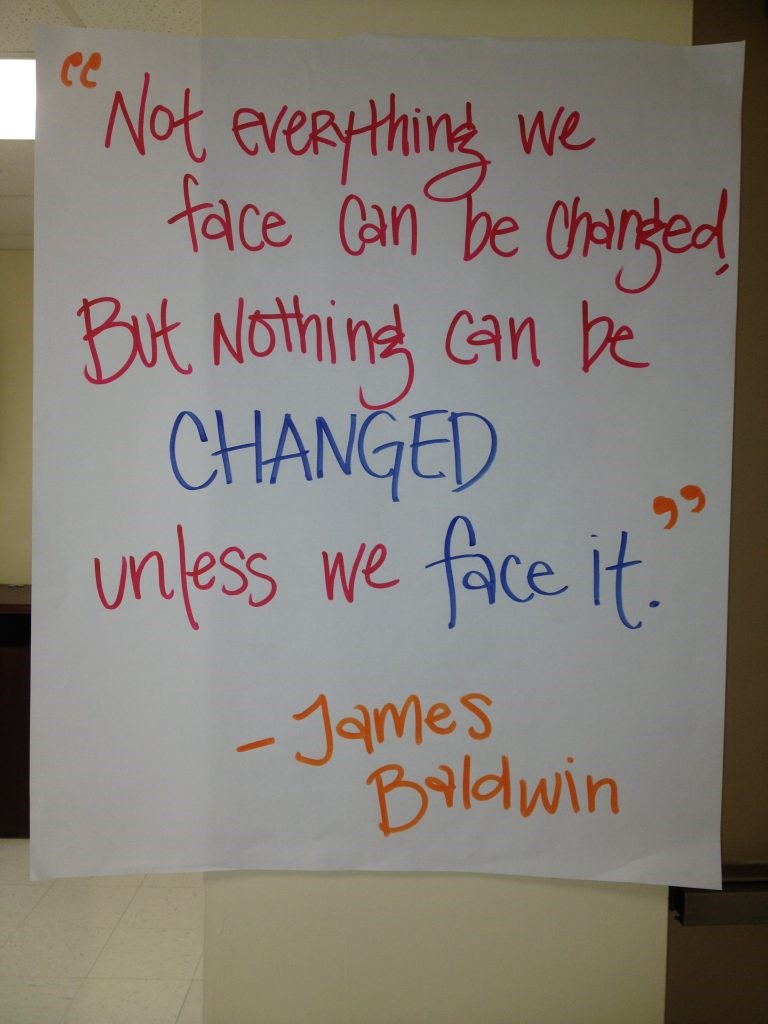 “Not everything we
face can be changed,
But Nothing can be
CHANGED
unless we face it.”
- James
Baldwin